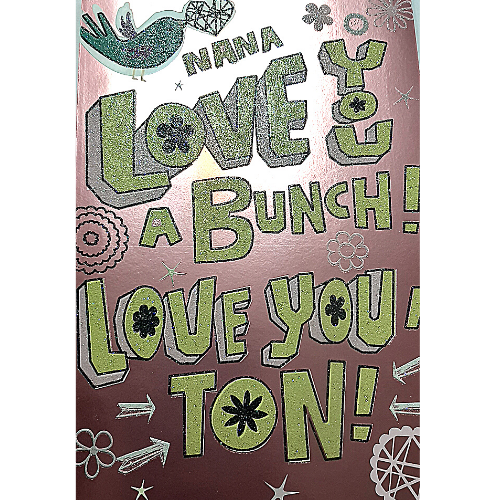 NANA
LOVE YOU
A BUNCH!
LOVE YOU A
TON!